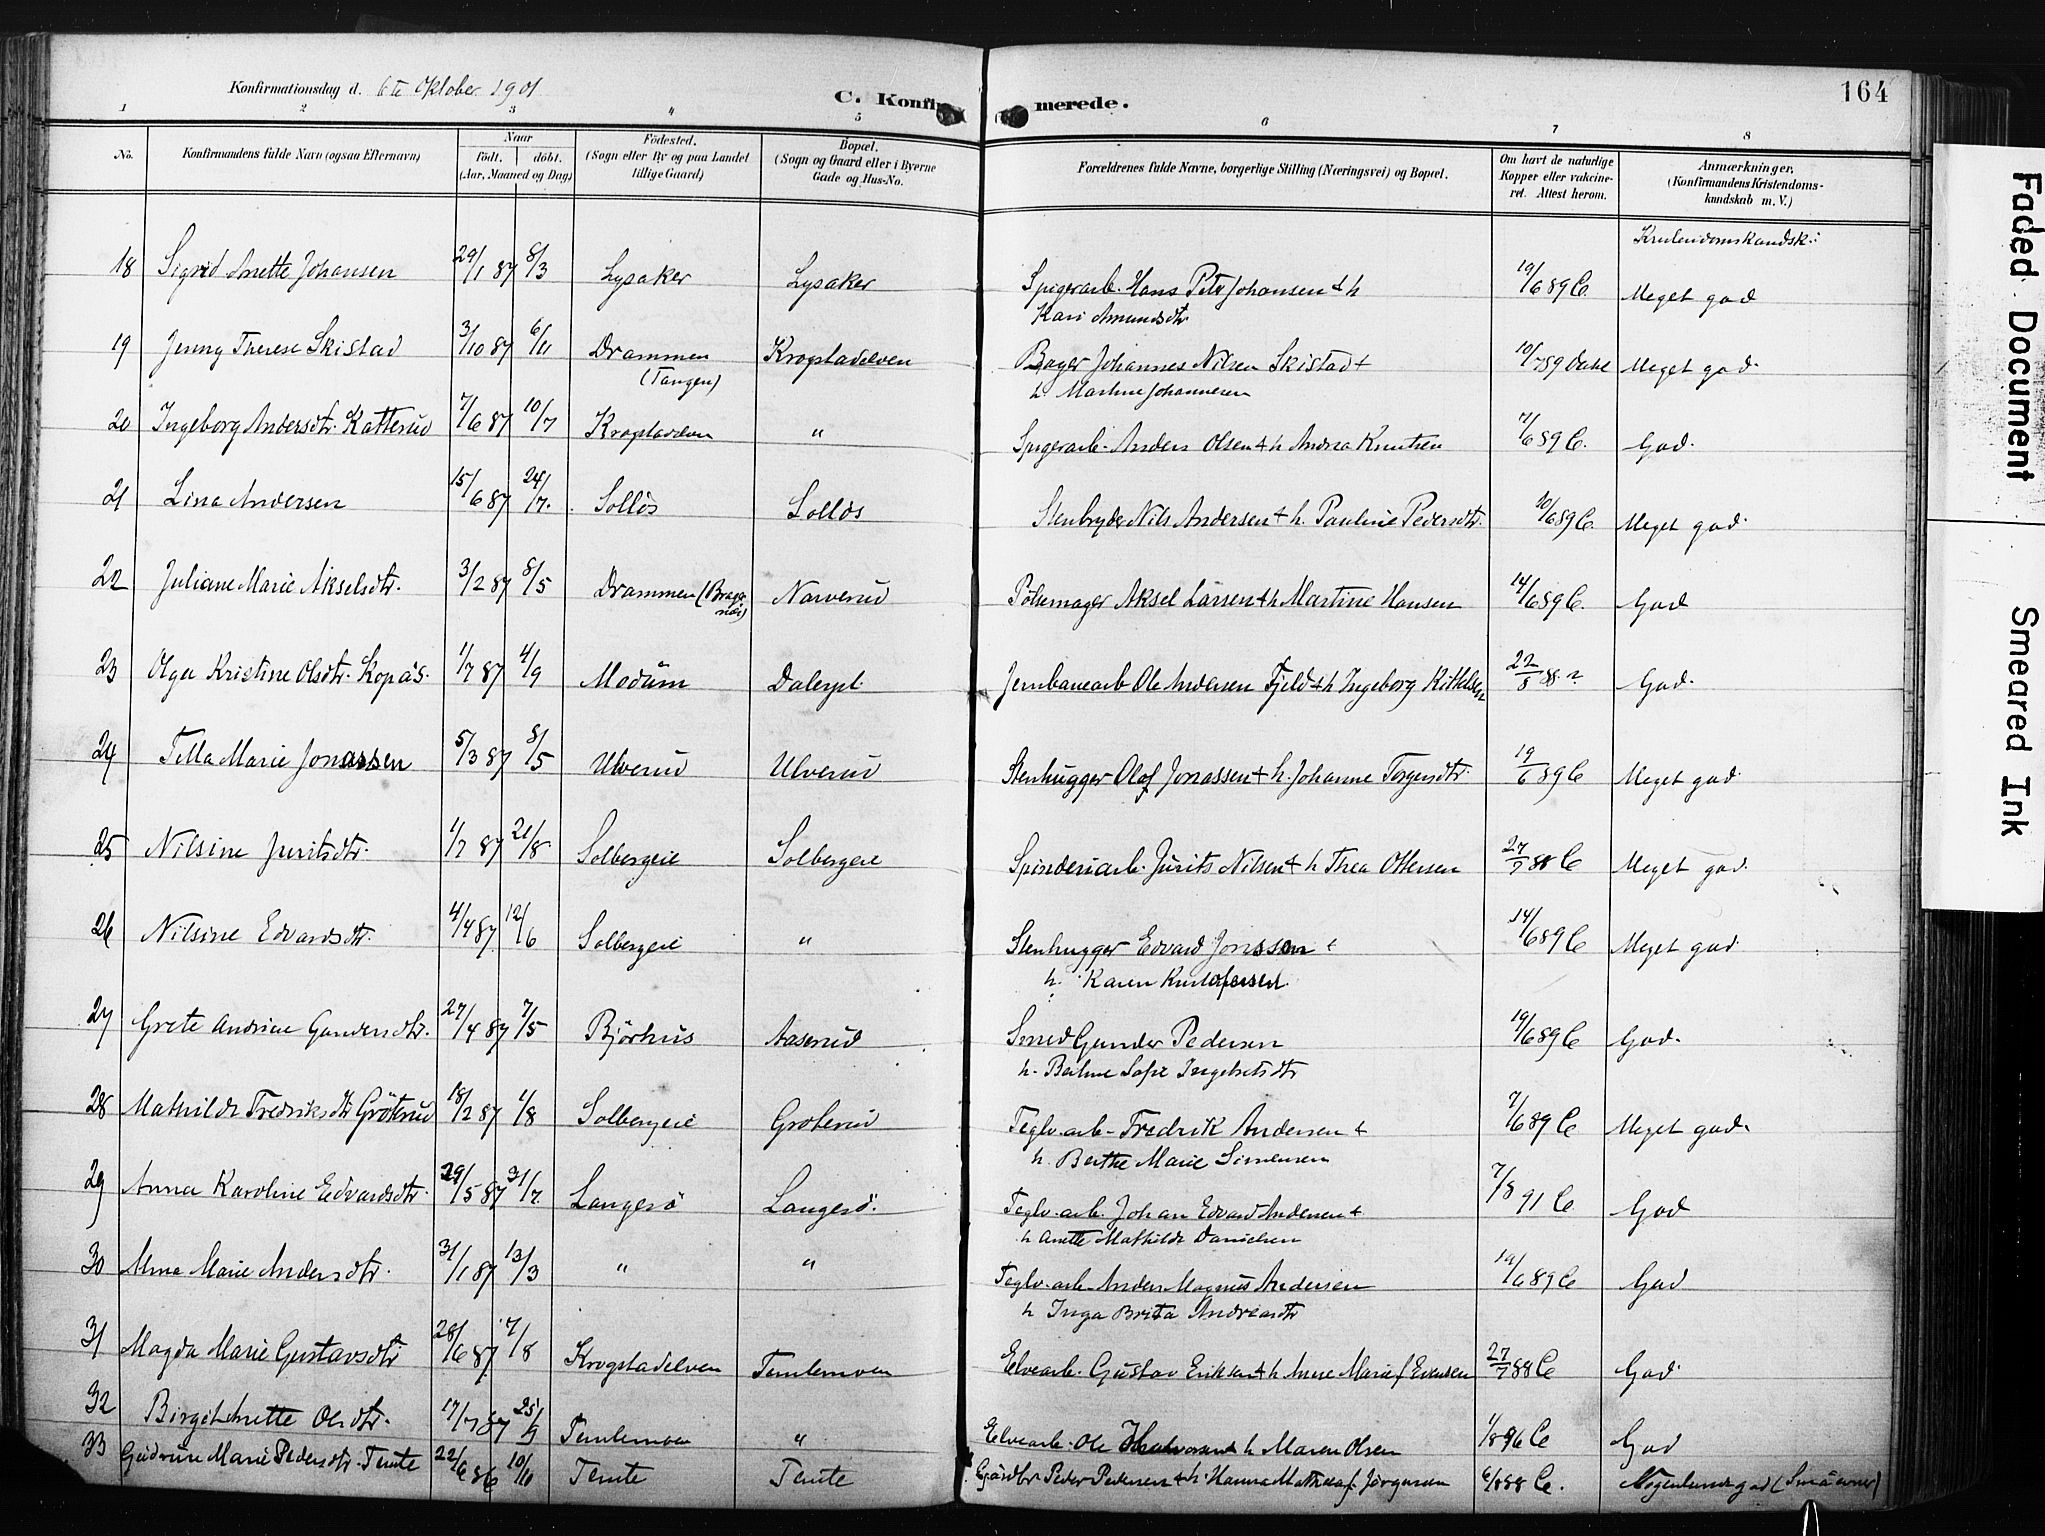 Konfirmationsdag d. 6te Oktober 1901
C. Konfirmerede.
164
1 2 3 4 5 6 7 8
No.
Konfirmandens fulde Navn (ogsaa Efternavn)
Naar
födt. döbt.
(Aar, Maaned og Dag)
Födested.
(Sogn eller By og paa Landet
tillige Gaard)
Bopæl.
(Sogn og Gaard eller i Byerne
Gade og Hus-No.
Forældrenes fulde Navne, borgerlige Stilling (Næringsvei) og Bopæl.
Om havt de naturlige
Kopper eller vakcine-
ret. Attest herom.
Anmærkninger,
(Konfirmandens Kristendoms-
kundskab m. V.)
18 Sigrid Anette Johansen 29/1 87 8/3 Lysaker Lysaker Spigerarb. Hans Peter Johansen + h 19/6 89 C. Meget god
Kari Amundsdtr.
19 Jenny Therese Skistad 3/10 87 6/11 Drammen Krogstadelven Bager Johannes Nilsen Skistad + 10/7 89 Meget god.
(Tangen) h. Martine Johannesen
20 Ingeborg Andersdtr. Katterud 7/6 87 10/7 Krogstadelven " Spigerarb. Anders Olsen + h Andrea Knutsen 7/6 89 C. God.
21 Lina Andersen 15/6 87 24/7. Solløs Solløs Stenbryder Nils Andersen + h. Pauline Pedersdtr. 10/6 89 C. Meget god.
22 Juliane Marie Akselsdtr. 3/2 87 8/5 Drammen (Brager- Narverud Pölsemager Aksel Larsen + h Martine Hansen 14/6 89 C. God
næs)
23 Olga Kristine Olsdtr. Kopås. 1/7 87 4/9 Modum Jernbanearb Ole Andersen Fjeld + h Ingeborg Kittelsen 22/8 88 God.
24 Tilla Marie Jonassen 5/3 87 8/5 Ulverud Ulverud Stenhugger Olaf Jonassen + h. Johanne Torgersdtr. 19/6 89 C Meget god
25 Nilsine Juritsdtr. 1/7 87 21/8 Solbergeie Solbergeie Spinderiarb. Jurits Nilsen + h Thea Ottersen 27/7 88 C Meget god.
26 Nilsine Edvardsdtr. 4/4 87. 12/6 Solbergeie " Stenhugger Edvard Jonsson + 14/6 89 C Meget god
h. Karen Kristofersen
27 Grete Andrine Gundersdtr. 27/4 87 7/5 Björhus Aaserud Smed Gunder Pedersen 19/6 89 C God.
h. Sofie Ingebretsdtr
28 Mathilde Fredriksdtr Gröterud 18/2 87 1/8 Solbergeie Groterud Teglv. arb. Fredrik Andersen + 7/6 89 C Meget god.
h. Berthe Marie Simensen
29 Anna Karoline Edvardsdtr. 29/5 87 31/7. Langesö Langesö. Teglv. arb. Johan Edvard Andersen + 7/8 91 C. God
h Anette Mathilde Danielsen
30 Marie Andersdtr. 31/1 87 13/3 " " Teglv. arb. Anders Magnus Andersen 19/6 89 C God
h Inga Brita Andreasdtr
31 Magda Marie Gustavsdtr 28/6 87. 7/8 Krogstadelven Temlemoen Elvearb. Gustav Eriksen + h Anne Marie f Evensen 27/7 88 C God
32 Birgit Anette Olsdtr. 17/7 87 25/9 Temlemoen " Elvearb. Ole Halvorsen + h Maren Olsen 1/8 96 C God
33 Gudrun Marie Pedersdtr. Temte 22/6 86 10/10 Temte Temte Gårdbr Peder Pedersen + h. Hanna Jörgensen 6/8 88 C. Nogenlunde god (Små evner)
Faded Document
Smeared Ink